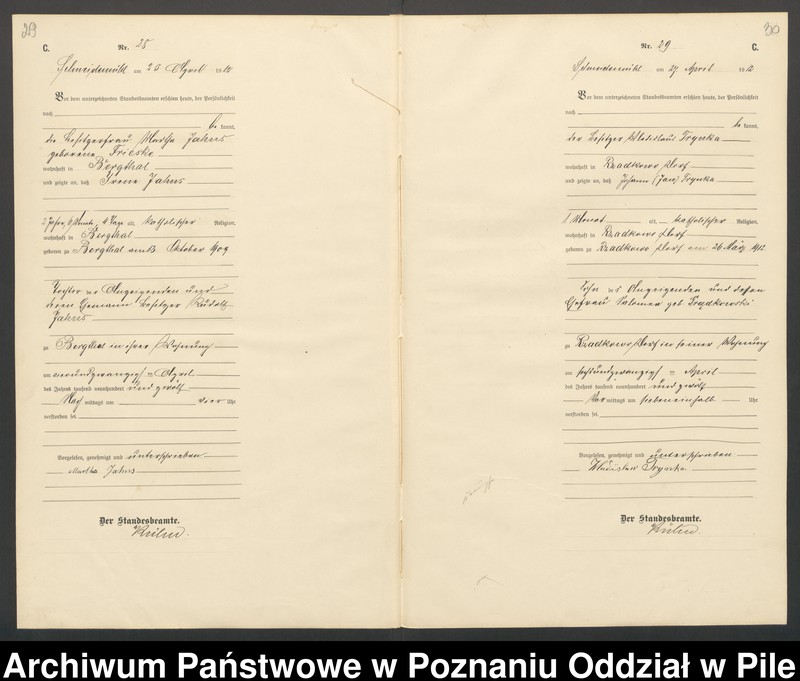 29
C. Nr. 28
Schneidemühl am 20 April 1912
Vor dem unterzeichneten Standesbeamten erschien heute, der Persönlichkeit
nach
be kannt,
die Besitzerfrau Martha Jahns
geborene Frieske
wohnhaft in Bergthal
und zeigte an, daß Irene Jahns
2 Jahre, 6 Monate, 4 Tage alt, katholischer Religion,
wohnhaft in Bergthal
geboren zu Bergthal am Oktober 1909
Tochter der Anzeigenden und
deren Ehemann Besitzer Rudolf
Jahns
zu Bergthal in ihrer Wohnung
am einundzwanzig ten April
des Jahres tausend neunhundert und zwölf
Nach mittags um vier Uhr
verstorben sei.
Vorgelesen, genehmigt und unterschrieben
Martha Jahns
Der Standesbeamte.
30
Nr. 29 C.
Schneidemühl am 27 April 1912
Vor dem unterzeichneten Standesbeamten erschien heute, der Persönlichkeit
nach
be kannt,
der Besitzer Wladislaus Frynka
wohnhaft in Rzadkowo Dorf
und zeigte an, daß Johann (Jan) Frynka
1 Monat alt, katholischer Religion,
wohnhaft in Rzadkowo Dorf
geboren zu Rzadkowo Dorf am 26 März 1912
Sohn des Anzeigenden und dessen
Ehefrau Salomea geb
zu Rzadkowo Dorf in seiner Wohnung
am sechsundzwanzig ten April
des Jahres tausend neunhundert und zwölf
Vor mittags um siebeneinhalb Uhr
verstorben sei.
Vorgelesen, genehmigt und unterschrieben
Władisław Frynka
Der Standesbeamte.
Archiwum Państwowe w Poznaniu Oddział w Pile